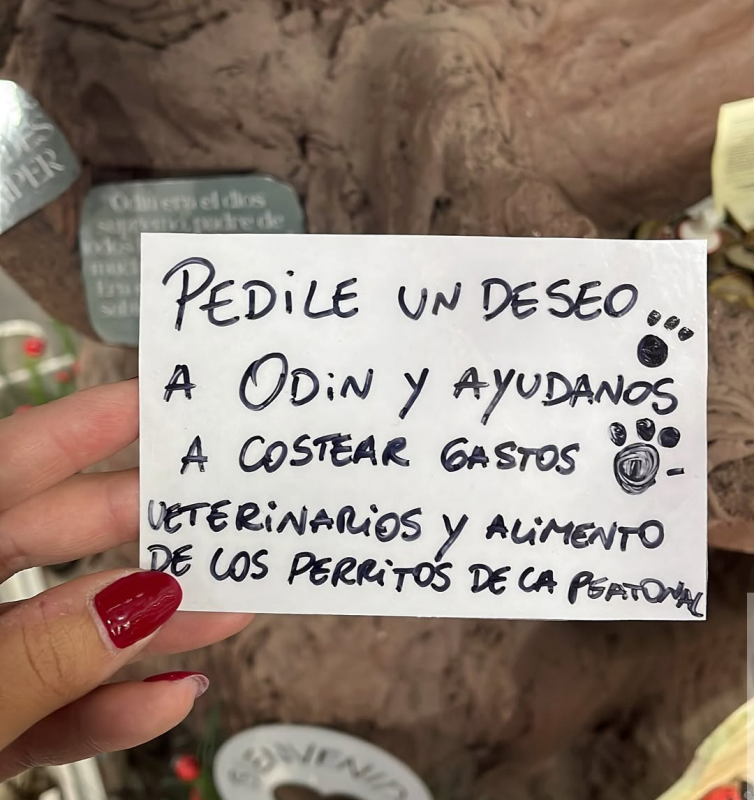 PEDILE UN DESEO
A ODIN Y AYUDANOS
A COSTEAR GASTOS
VETERINARIOS Y ALIMENTO
DE LOS PERRITOS DE LA PEATONAL
Odin era el dios
supremo, padre de
BIENVENID